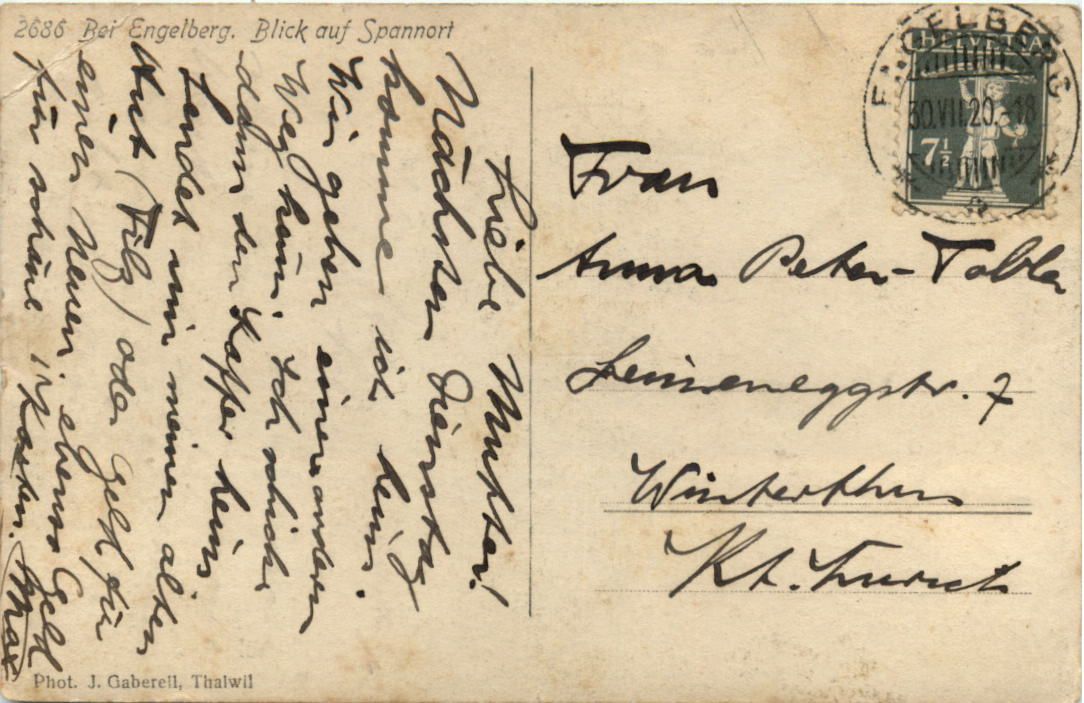 2686 Bei Engelberg. Blick auf Spannort
HELVETIA
7½
ENGELBERG
30.VII.20.-18
Liebe Mutter!
Nächsten Dienstag
komme ich heim.
Wir gehen einen andern
Weg heim. Ich schicke
dann den Koffer heim
Sendet mir meinen alten
Hut (Filz) oder Geld für
einen Neuen ebenso Geld
für schöne Karten. Max
Frau
Anna Peter-Tobler
Leimeneggstr. 7
Winterthur
Kt. Zürich
Phot. J. Gaberell, Thalwil